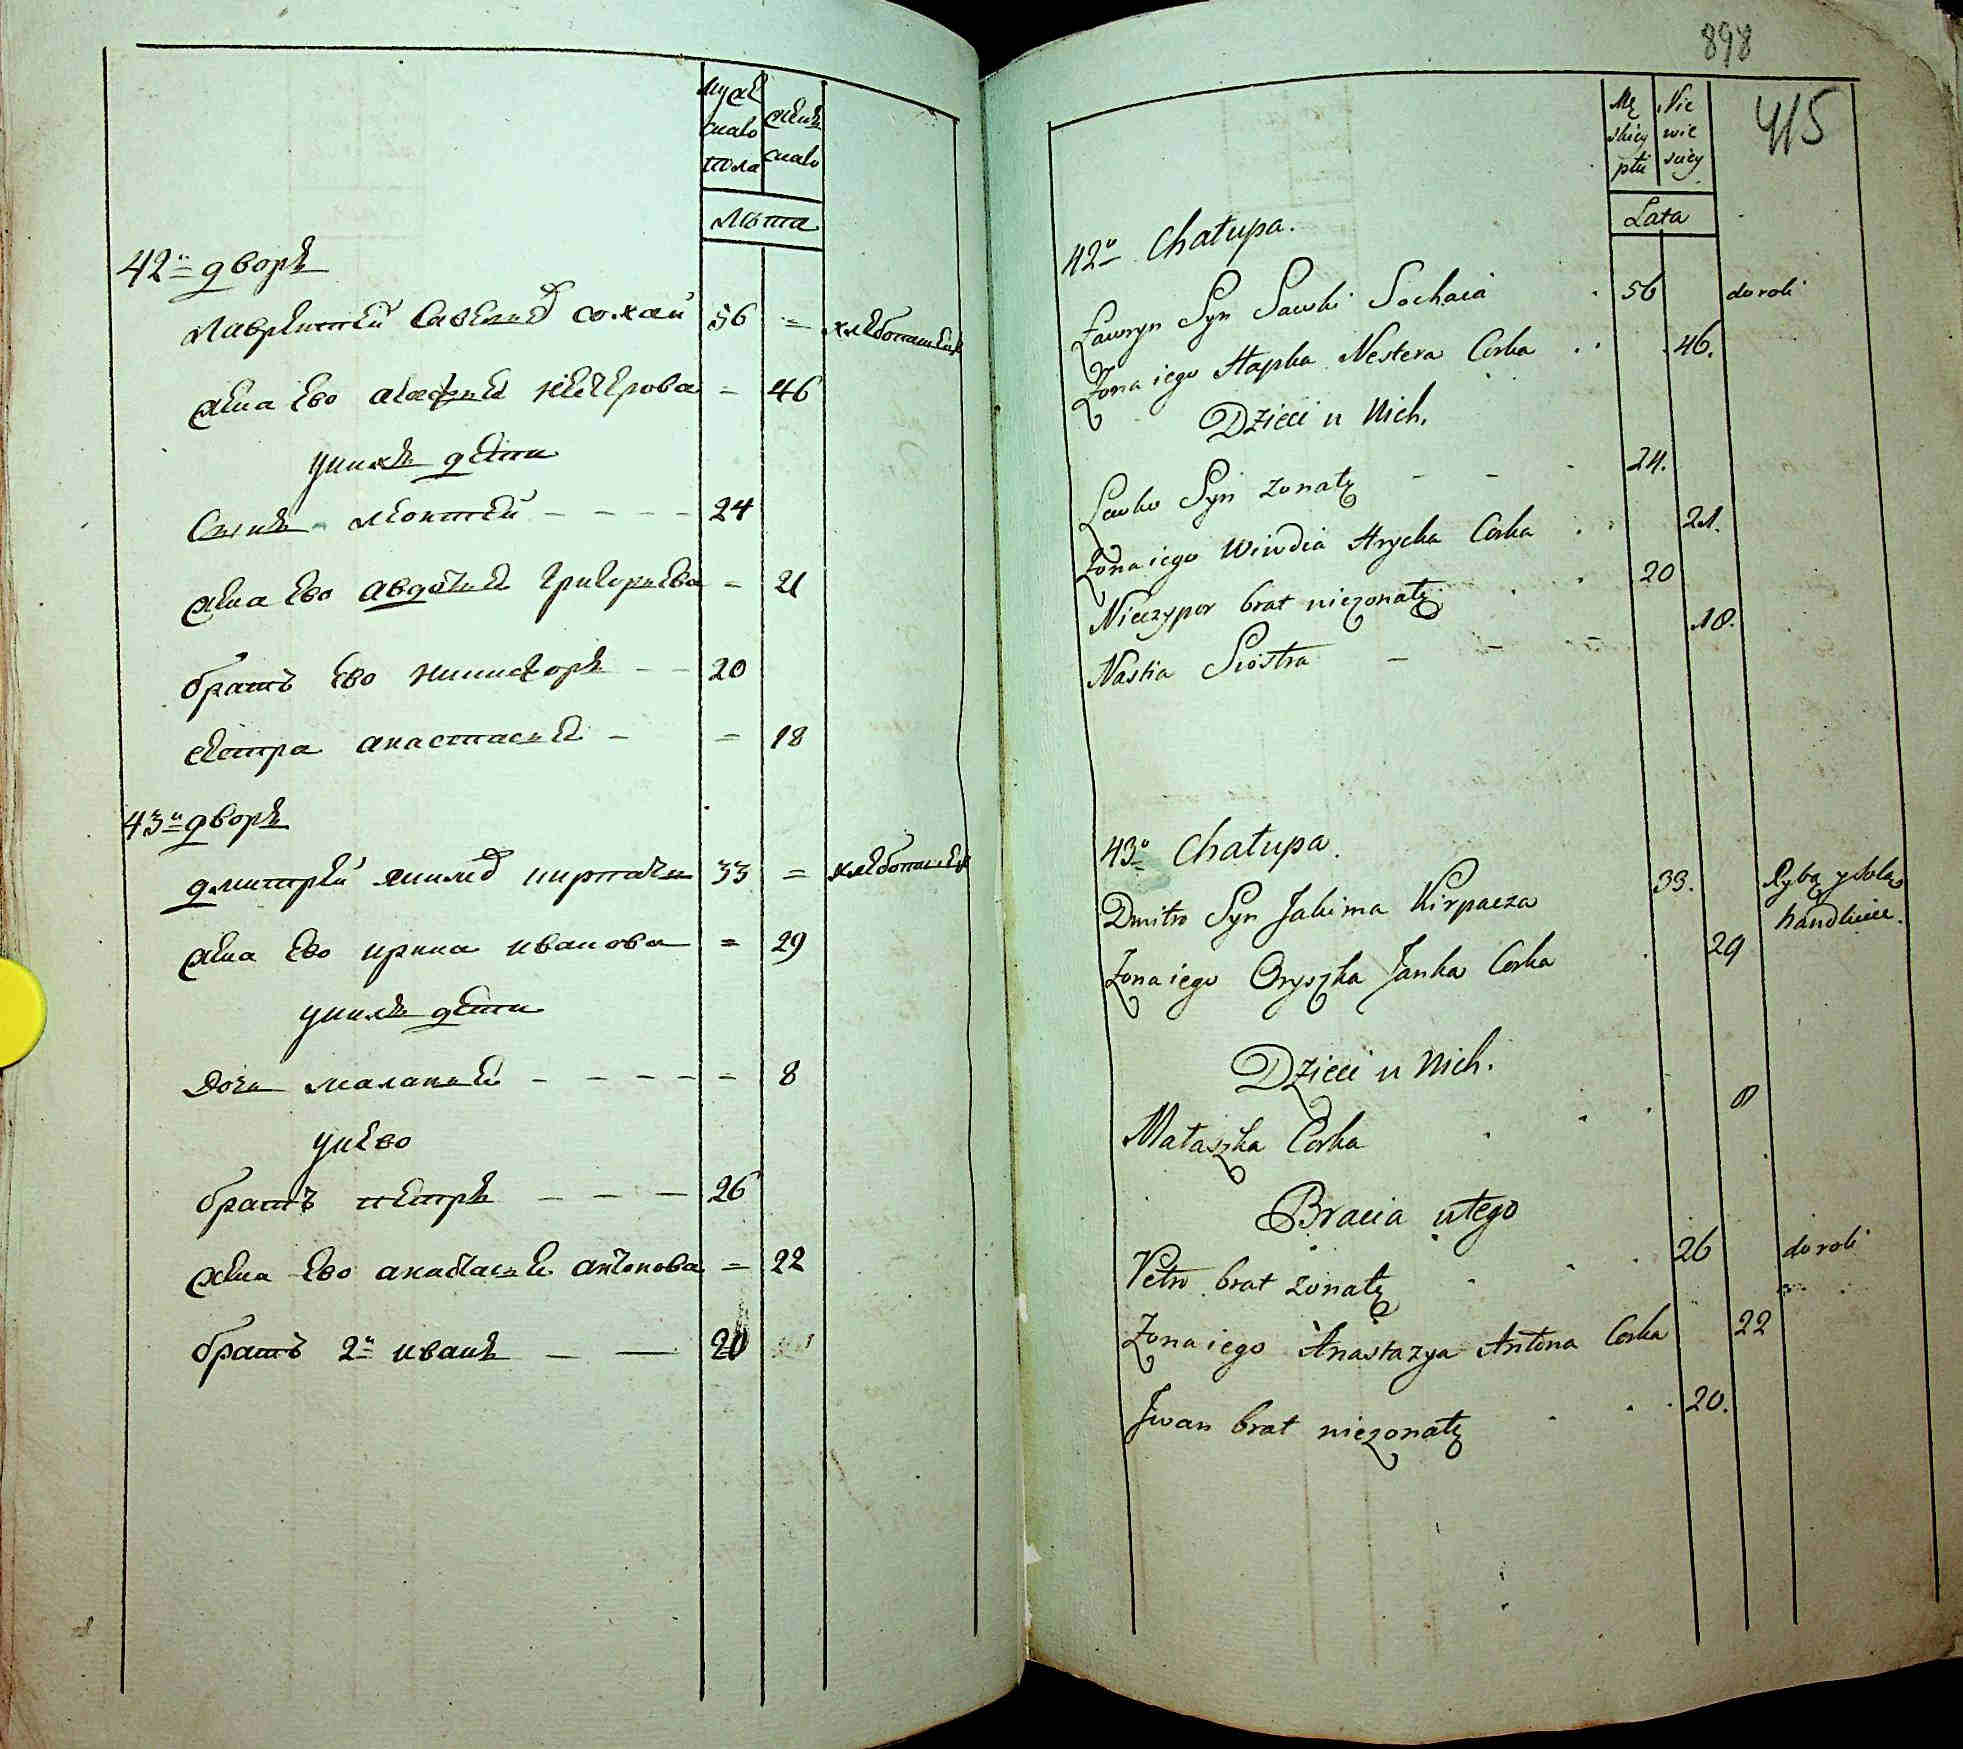 мужескаго пола
женскаго
Лѣта
42й дворъ
Лаврентей Савелиевъ сохай 56 = хлебопашецъ
жена ево агафия нестерова = 46
у нихъ дети
Сынъ леонтей - - - - 24
жена ево авдотия григориева = 21
братъ ево никифоръ - - 20
сестра анастасия - = 18
43й дворъ
дмитрей якимовъ кирпачъ 33 = хлебопашецъ
жена ево ирина иванова = 29
у нихъ дети
дочь малания - - - - = 8
у нево
братъ петръ - - - 26
жена ево анастасия антонова = 22
братъ 2й иванъ - - 20
898
415
Męskiey płci
Niewieściey
Lata
42a Chałupa.
Ławryn Syn Sawki Sochaia 56 do roli
Żona iego Hapka Nestera Corka 46.
Dzieci u Nich.
Lewko Syn żonaty - - - 24.
Żona iego Wiwdia Hrycka Corka 21.
Nieczypor brat nieżonaty 20
Nastia Siostra - - - 18.
43a Chałupa.
Dmitro Syn Jakima Kirpacza 33. Rybą y solą handluie.
Żona iego Oryszka Janka Corka 29
Dzieci u Nich.
Małaszka Corka 8
Bracia u tego
Petro brat żonaty 26 do roli
Żona iego Anastazya Antona Corka 22
Jwan brat nieżonaty 20.